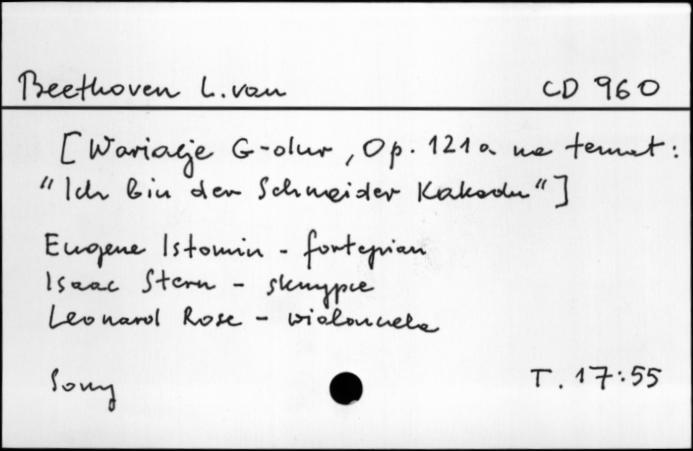 Beethoven L. van CD 960
[Wariacje G-dur, Op. 121 a na temat:
"Ich bin der Schneider Kakadu"]
Eugene Istomin - fortepian
Isaac Stern - skrzypce
Leonard Rose - wiolonczela
Sony T. 17:55